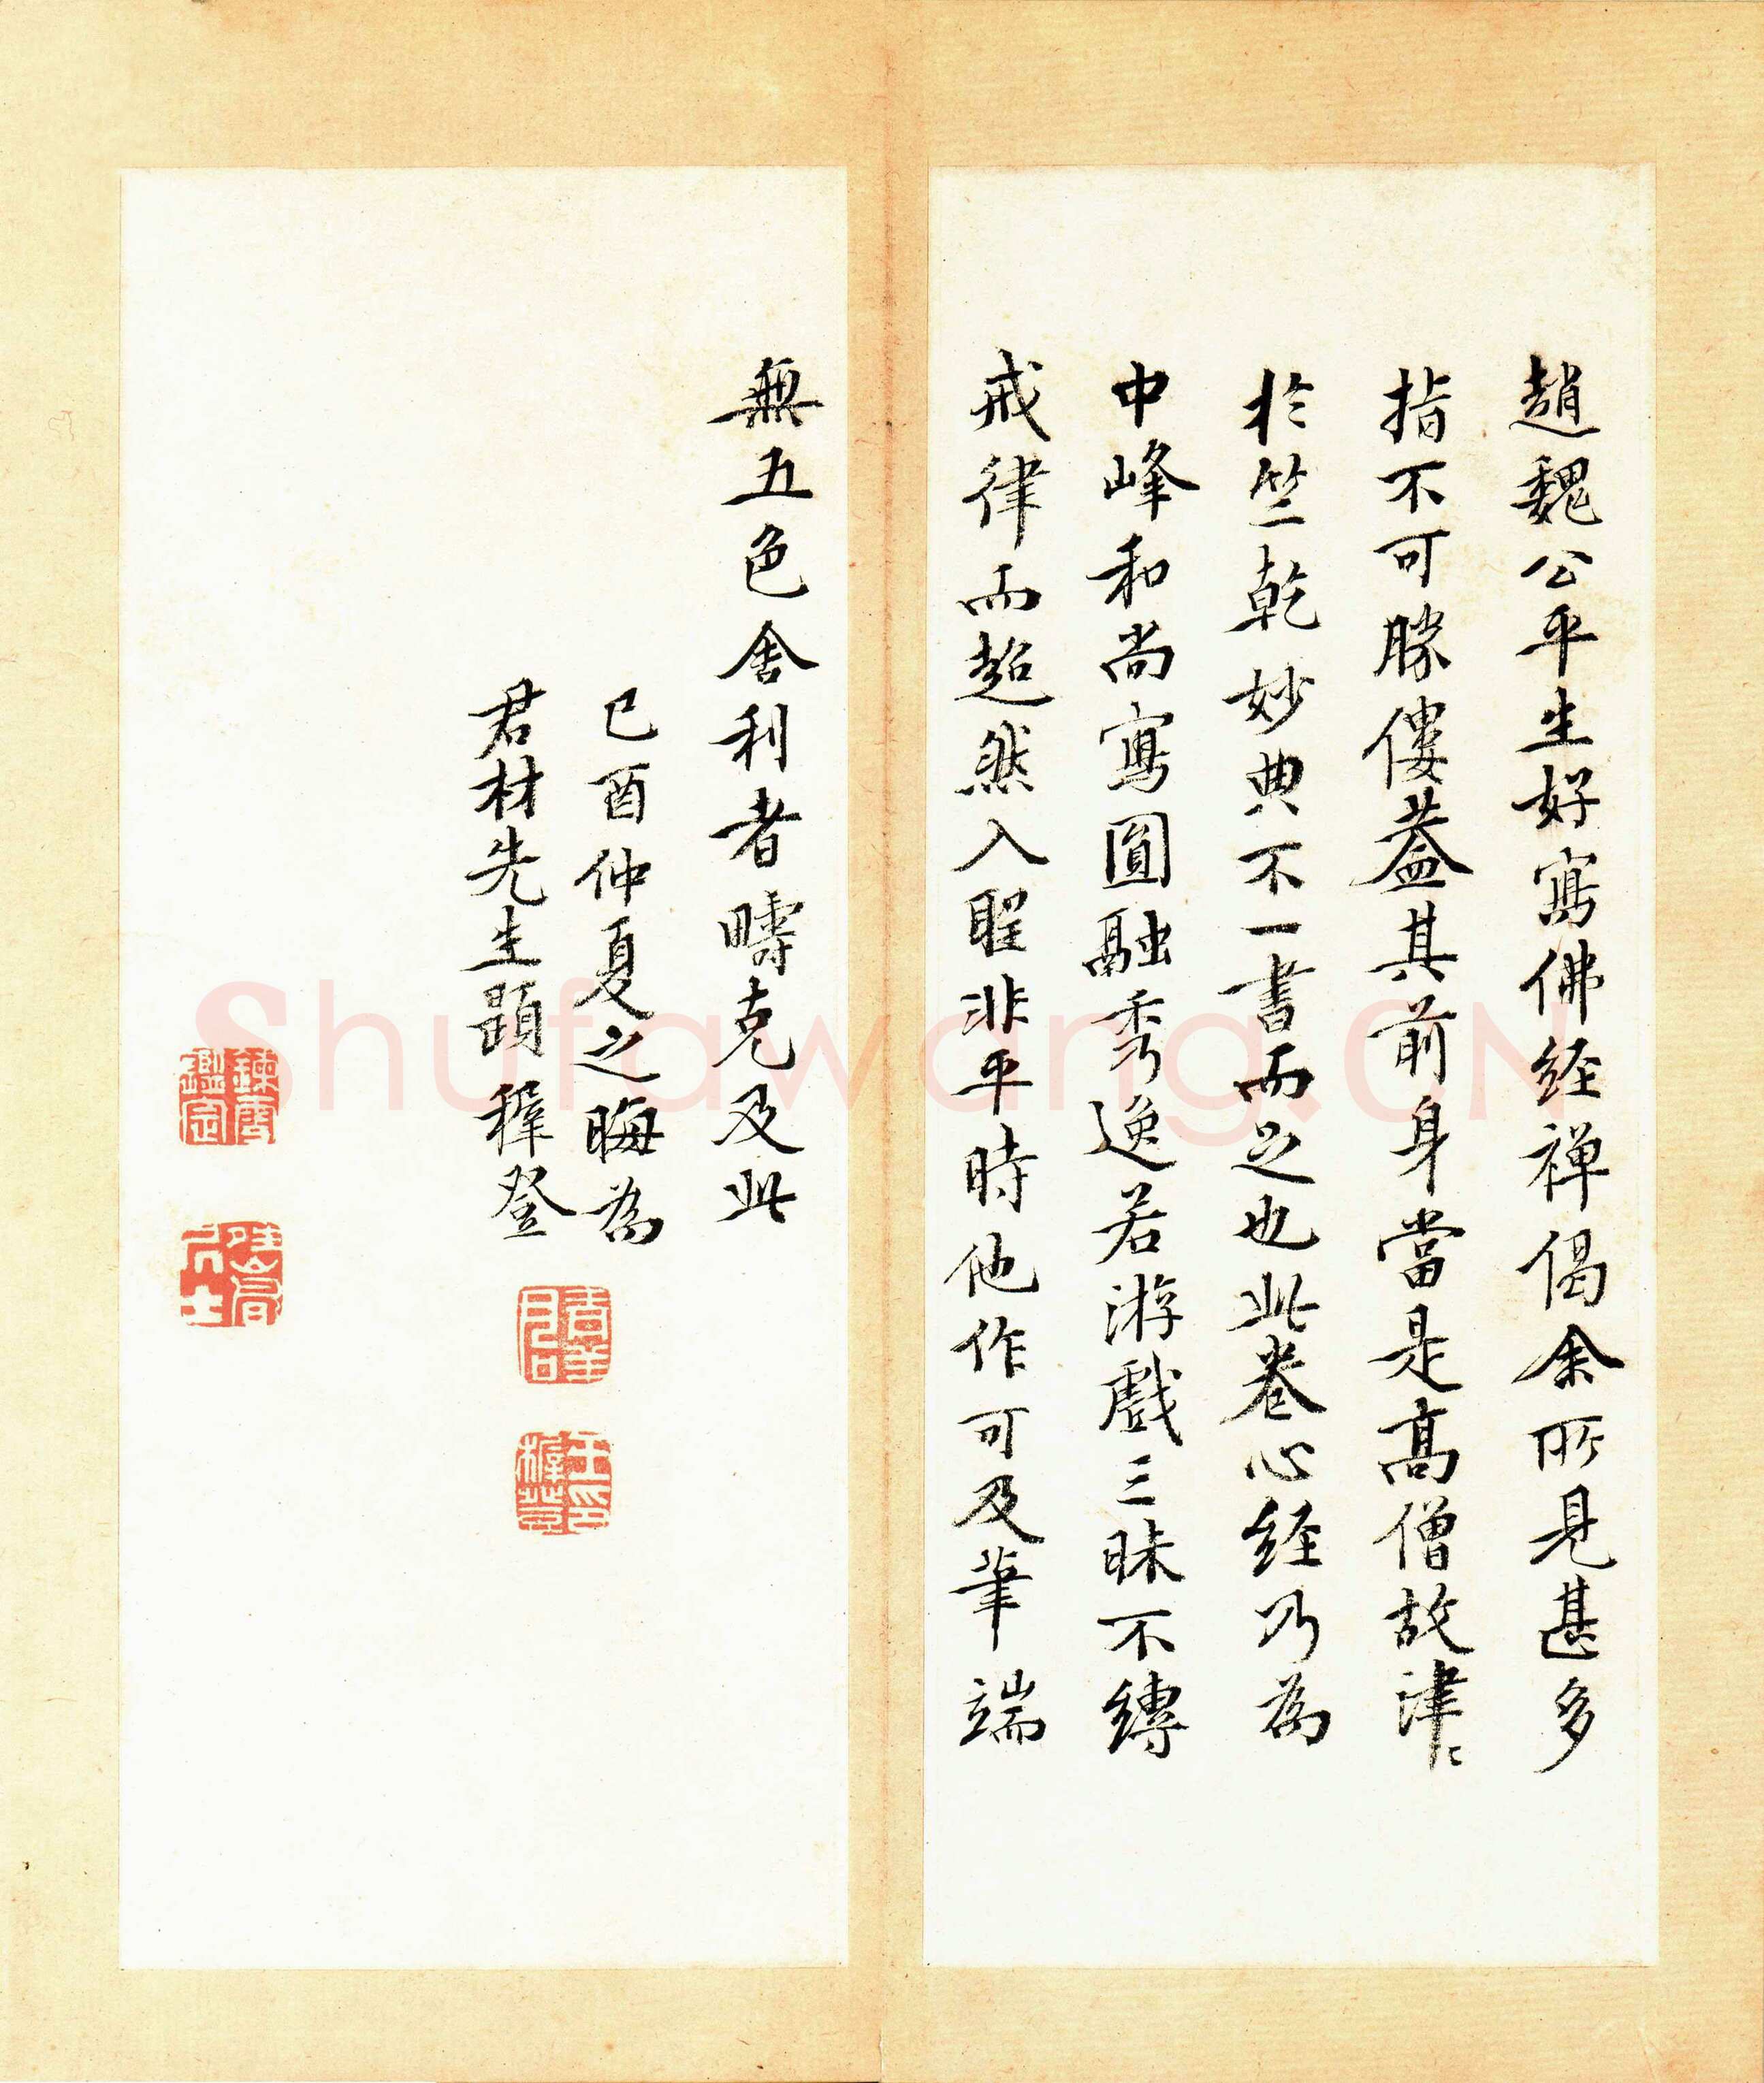 趙魏公平生好寫佛经禅偈余所見甚多
指不可勝僂蓋其前身當是髙僧故津〻
於竺乾妙典不一書而足也此卷心经乃為
中峰和尚寫圓融秀逸若游戲三昧不縛
戒律而超然入聖非平時他作可及筆端
無五色舍利者疇克及此
已酉仲夏之晦為
君材先生題穉登
王印
穉登
Shufawang.CN